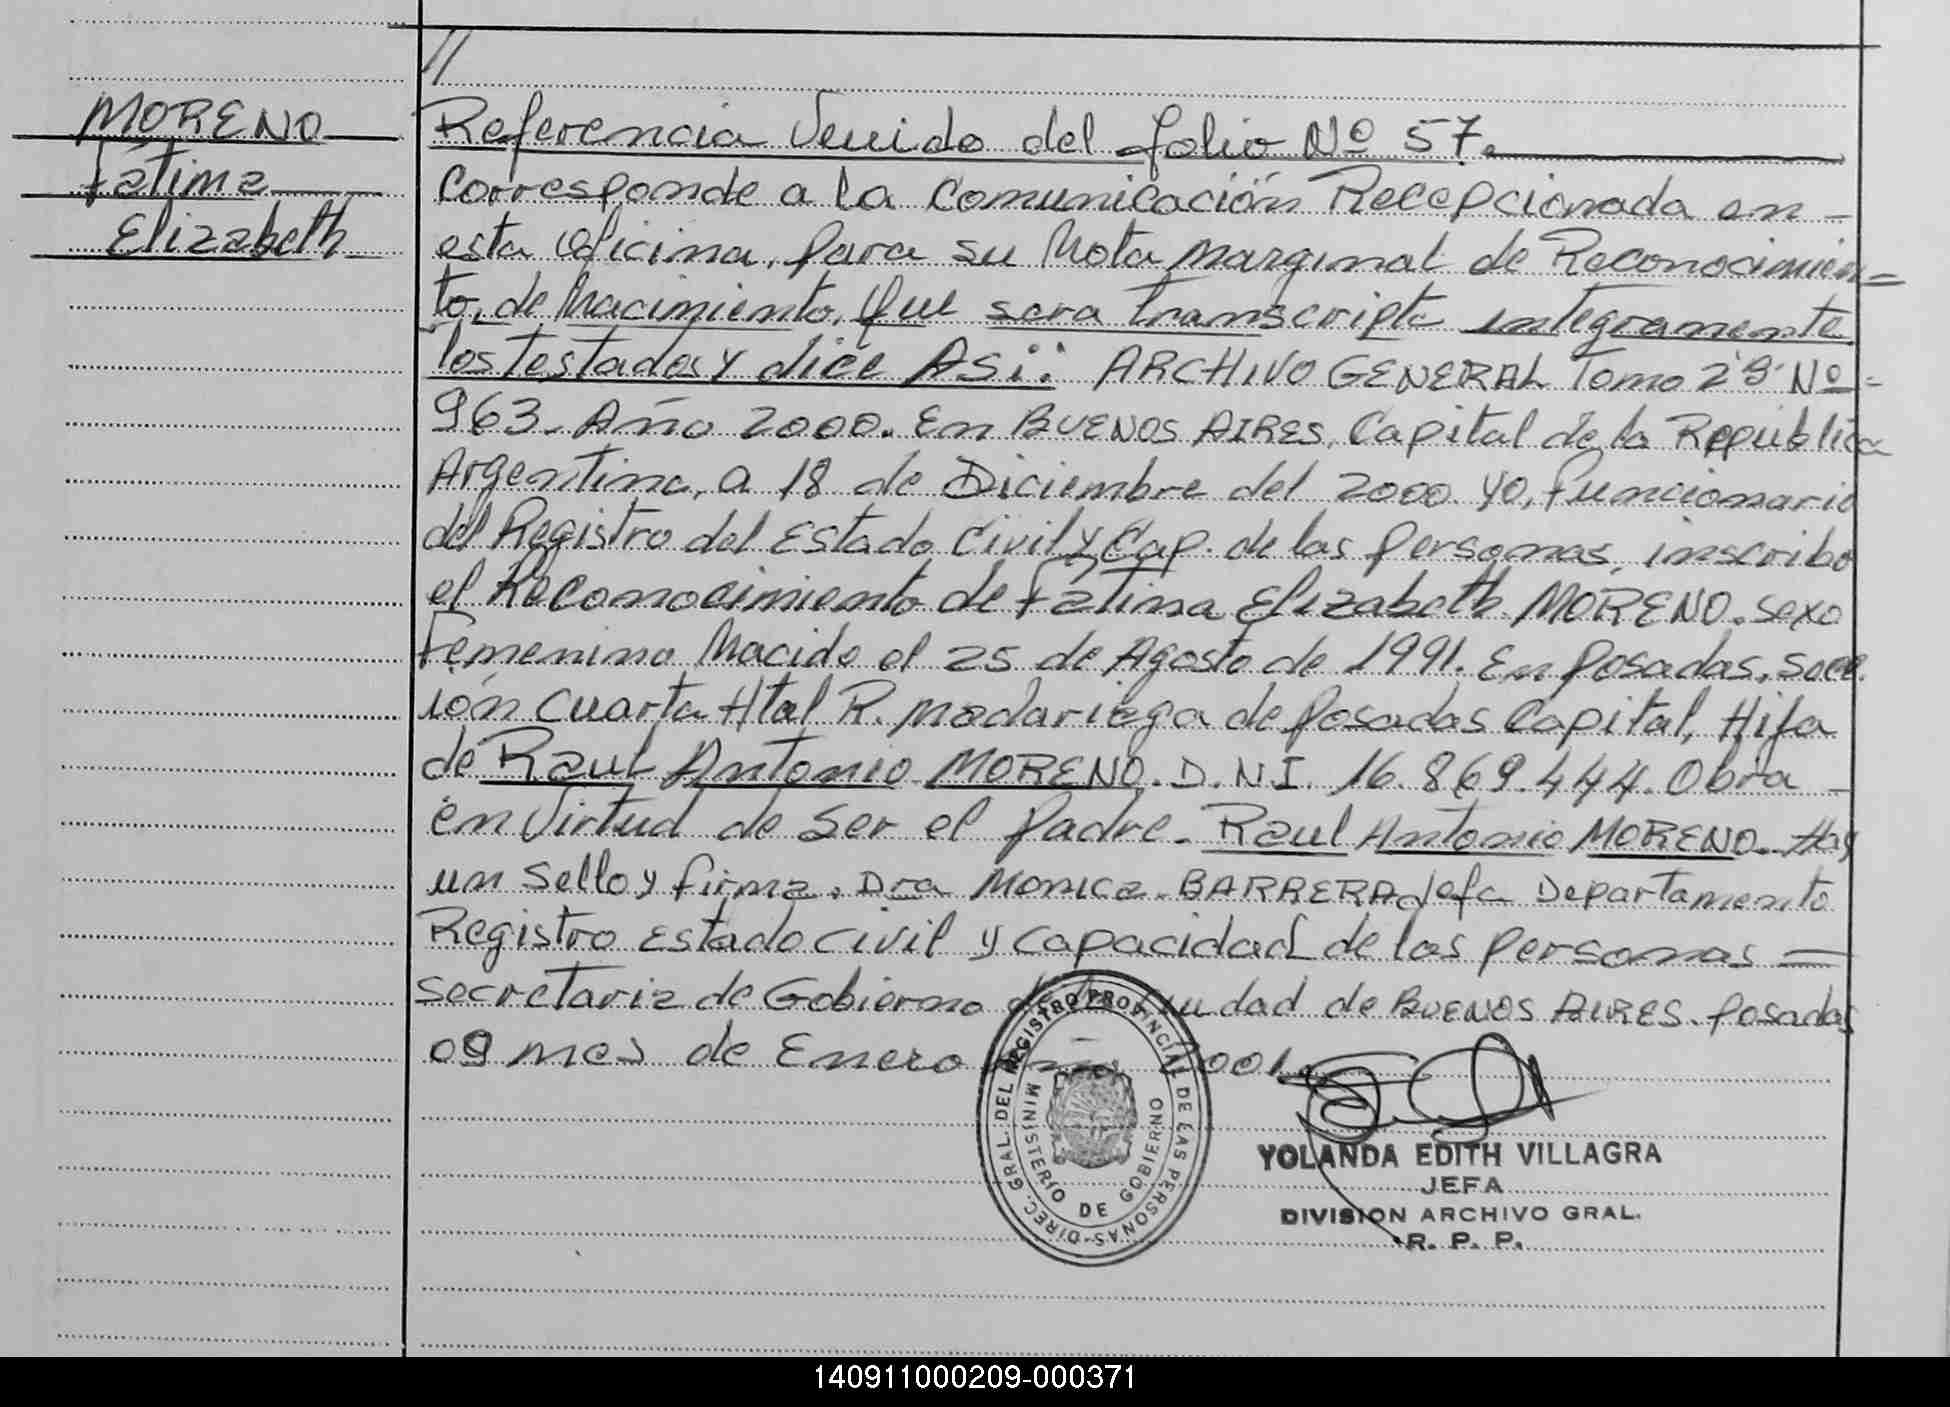 //
MORENO
Fátima
Elizabeth
Referencia Venido del folio Nº 57.
Corresponde a la Comunicación Recepcionada en -
esta Oficina, para su Nota Marginal de Reconocimien=
to, de Nacimiento, que sera transcripto integramente
los testados y dice Asi: ARCHIVO GENERAL Tomo 2º Nº =
963. Año 2000. En BUENOS AIRES, Capital de la República
Argentina, a 18 de Diciembre del 2000. Yo, Funcionario
del Registro del Estado Civil y Cap. de las Personas, inscribo
el Reconocimiento de Fátima Elizabeth MORENO. Sexo
Femenino Nacido el 25 de Agosto de 1991. En Posadas, Secc.
ión Cuarta Htal R. Madariaga de Posadas Capital, Hija
de Raul Antonio MORENO. D.N.I. 16.869.444. Obra -
en Virtud de ser el Padre. Raul Antonio MORENO. Hay
un Sello y firma. Dra Monica BARRERA Jefa Departamento
Registro Estado Civil y Capacidad de las Personas =
Secretaria de Gobierno de la Ciudad de BUENOS AIRES. Posadas
09 mes de Enero año 2001.
DIREC. GRAL. DEL REGISTRO PROVINCIAL DE LAS PERSONAS-
MINISTERIO DE GOBIERNO
YOLANDA EDITH VILLAGRA
JEFA
DIVISION ARCHIVO GRAL.
R. P. P.
140911000209-000371